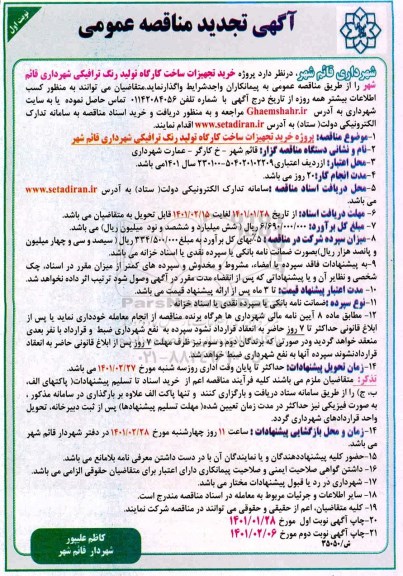 آگهی تجدید مناقصه عمومی
نوبت اول
شهرداری قائم شهر، درنظر دارد پروژه خرید تجهیزات ساخت کارگاه تولید رنگ ترافیکی شهرداری قائم
شهر را از طریق مناقصه عمومی به پیمانکاران واجدشرایط واگذارنماید.متقاضیان می توانند به منظور کسب
اطلاعات بیشتر همه روزه از تاریخ درج آگهی با شماره تلفن ۰۱۱۴۲۰۸۴۰۵۶ تماس حاصل نموده یا به سایت
شهرداری به آدرس Ghaemshahr.ir مراجعه و به منظور دریافت و خرید اسناد مناقصه به سامانه تدارک
الکترونیکی دولت( ستاد) به آدرس www.setadiran.ir اقدام نمایند.
۱-موضوع مناقصه: پروژه خرید تجهیزات ساخت کارگاه تولید رنگ ترافیکی شهرداری قائم شهر
۲-نام و نشانی دستگاه مناقصه گزار: قائم شهر - خ کارگر - عمارت شهرداری
۳-محل اعتبار: ازردیف اعتباری ۲۳۰۱۰۰-۵۰۴۰۲۰۱۰۲۲۰۹ سال ۱۴۰۱می باشد.
۴-مدت انجام کار: ۲۰ روز می باشد.
۵-محل دریافت اسناد مناقصه :سامانه تدارک الکترونیکی دولت( ستاد) به آدرس www.setadiran.ir
می باشد.
۶-مهلت دریافت اسناد: از تاریخ ۱۴۰۱/۰۱/۲۸ لغایت ۱۴۰۱/۰۲/۱۵ قابل تحویل به متقاضیان می باشد.
۷-مبلغ کل برآورد: ۶/۶۹۰/۰۰۰/۰۰۰ ریال (شش میلیارد و ششصد و نود میلیون ریال) می باشد.
۸-میزان سپرده شرکت در مناقصه: ۵٪بهای کل برآورد به مبلغ ۳۳۴/۵۰۰/۰۰۰ ریال ( سیصد و سی و چهار میلیون
و پانصد هزار ریال)بصورت ضمانت نامه بانکی یا سپرده نقدی یا اسناد خزانه می باشد.
۹-به پیشنهادات فاقد سپرده یا امضاء، مشروط و مخدوش و سپرده های کمتر از میزان مقرر در اسناد، چک
شخصی و نظایر آن و یا پیشنهاداتی که پس از انقضاء مدت مقرر در آگهی وصول شود ترتیب اثر داده نخواهد شد.
۱۰-مدت اعتبار پیشنهاد قیمت: تا ۳ ماه پس از ارائه پیشنهاد قیمت می باشد.
۱۱-نوع سپرده :ضمانت نامه بانکی یا سپرده نقدی یا اسناد خزانه
۱۲-مطابق ماده ۸ آیین نامه مالی شهرداری ها هرگاه برنده مناقصه از انجام معامله خودداری نماید یا پس از
ابلاغ قانونی حداکثر تا ۷ روز حاضر به انعقاد قرارداد نشود سپرده به نفع شهرداری ضبط و قرارداد با نفر بعدی
منعقد خواهد گردید ودر صورتی که برندگان دوم و سوم نیز ظرف مهلت ۷ روز پس از ابلاغ قانونی حاضر به انعقاد
قراردادنشوند سپرده آنها به نفع شهرداری ضبط خواهد شد.
۱۳-زمان تحویل پیشنهادات: حداکثر تا پایان وقت اداری روزسه شنبه مورخ ۱۴۰۱/۰۲/۲۷ می باشد.
تذکر: متقاضیان ملزم می باشند کلیه فرآیند مناقصه اعم از خرید اسناد تا تسلیم پیشنهادات( پاکتهای الف،
ب، ج) را از طریق سامانه ستاد دریافت و بارگزاری کنند و تنها پاکت الف علاوه بر بارگذاری در سامانه مذکور ،
به صورت فیزیکی نیز حداکثر در مدت زمان تعیین شده( مهلت تسلیم پیشنهادها) پس از ثبت دبیرخانه، تحویل
واحد قراردادهای شهرداری گردد
۱۴-زمان و محل بازگشایی پیشنهادات : ساعت ۱۱ روز چهارشنبه مورخ ۱۴۰۱/۰۲/۲۸ در دفتر شهردار قائم شهر
می باشد.
۱۵-حضور کلیه پیشنهاددهندگان و یا نمایندگان آن با در دست داشتن معرفی نامه بلامانع می باشد.
۱۶- داشتن گواهی صلاحیت ایمنی و صلاحیت پیمانکاری دارای اعتبار برای متقاضیان حقوقی الزامی می باشد.
۱۷- شهرداری در رد یا قبول پیشنهادات مختار می باشد.
۱۸- سایر اطلاعات و جزئیات مربوط به معامله در اسناد مناقصه مندرج است.
۱۹- کلیه متقاضیان، اعم از حقیقی و حقوقی می توانند در مناقصه شرکت نمایند.
۲۰-چاپ آگهی نوبت اول مورخ ۱۴۰۱/۰۱/۲۸
۲۱-چاپ آگهی نوبت دوم مورخ ۱۴۰۱/۰۲/۰۶
ش/۳۵۰۵۰
کاظم علیپور
شهردار قائم شهر